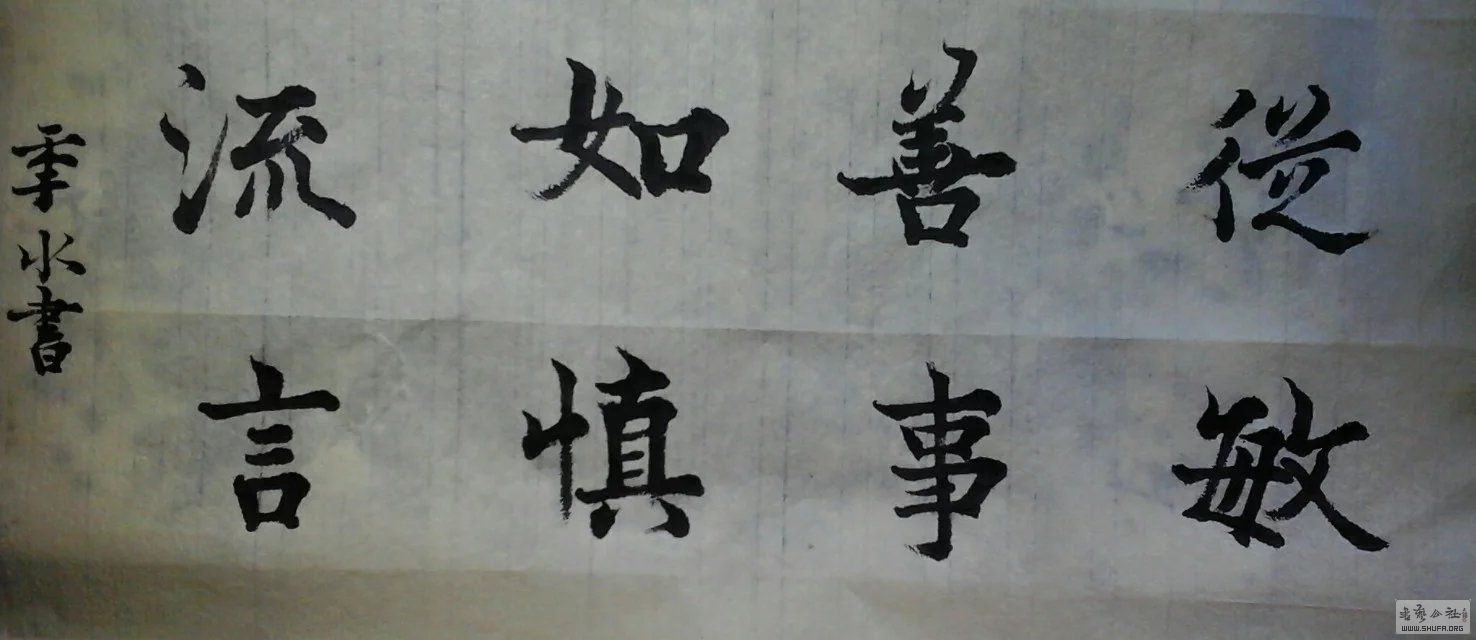 從善如流
敏事慎言
水書
WWW.SHUFA.ORG